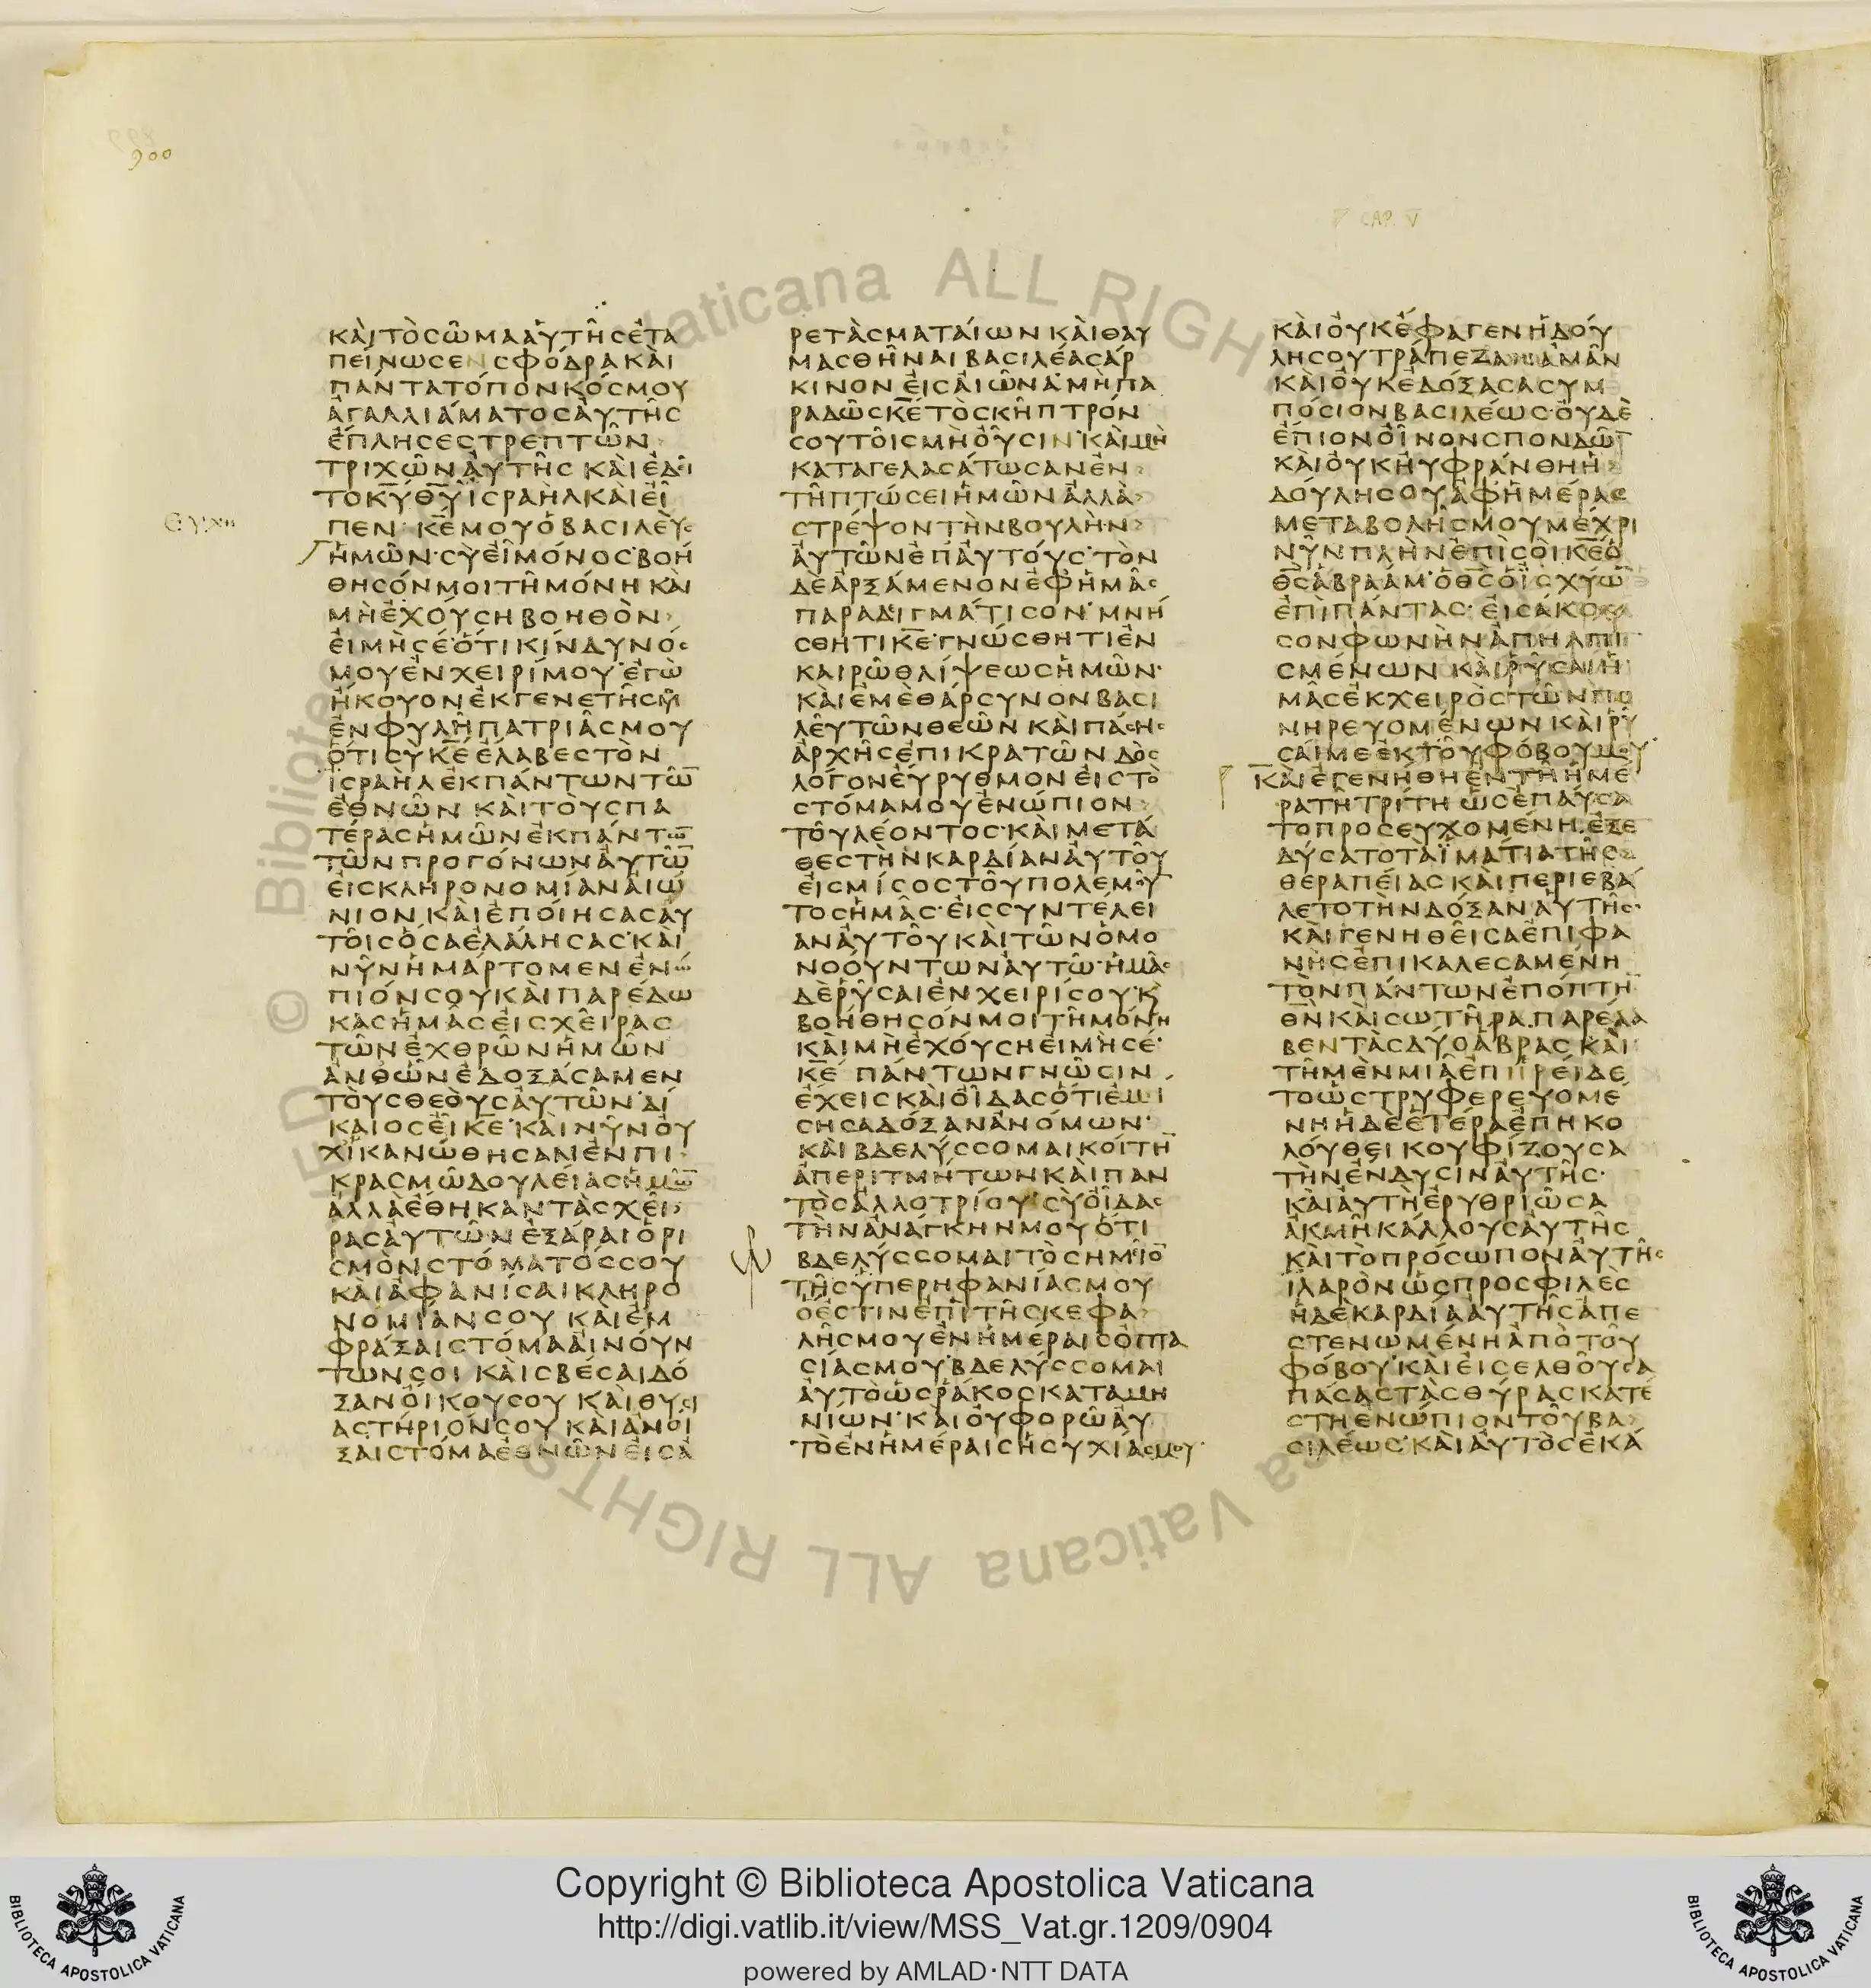 900
CAP. V
ΚΑΙΤΟϹΩΜΑΑΥΤΗϹΕΤΑ
ΠΕΙΝΩϹΕΝϹΦΟΔΡΑΚΑΙ
ΠΑΝΤΑΤΟΠΟΝΚΟϹΜΟΥ
ΑΓΑΛΛΙΑΜΑΤΟϹΑΥΤΗϹ
ΕΠΛΗϹΕϹΤΡΕΠΤΩΝ
ΤΡΙΧΩΝΑΥΤΗϹ ΚΑΙΕΔΕΙ
ΤΟΚΥ̅ΘΥ̅ΙϹΡΑΗΛΚΑΙΕΙ
ΠΕΝ· ΚΕ̅ΜΟΥΟΒΑϹΙΛΕΥϹ
ΗΜΩΝ·ϹΥΕΙΜΟΝΟϹ·ΒΟΗ
ΘΗϹΟΝΜΟΙΤΗΜΟΝΗΚΑΙ
ΜΗΕΧΟΥϹΗΒΟΗΘΟΝ
ΕΙΜΗϹΕ·ΟΤΙΚΙΝΔΥΝΟϹ
ΜΟΥΕΝΧΕΙΡΙΜΟΥ·ΕΓΩ
ΗΚΟΥΟΝΕΚΓΕΝΕΤΗϹΜΟΥ
ΕΝΦΥΛΗΠΑΤΡΙΑϹΜΟΥ
ΟΤΙϹΥΚΕ̅ΕΛΑΒΕϹΤΟΝ
ΙϹΡΑΗΛΕΚΠΑΝΤΩΝΤΩ̅
ΕΘΝΩΝ ΚΑΙΤΟΥϹΠΑ
ΤΕΡΑϹΗΜΩΝΕΚΠΑΝΤΩ̅
ΤΩΝΠΡΟΓΟΝΩΝΑΥΤΩ̅
ΕΙϹΚΛΗΡΟΝΟΜΙΑΝΑΙΩ
ΝΙΟΝ ΚΑΙΕΠΟΙΗϹΑϹΑΥ
ΤΟΙϹΟϹΑΕΛΑΛΗϹΑϹ·ΚΑΙ
ΝΥΝΗΜΑΡΤΟΜΕΝΕΝΩ
ΠΙΟΝϹΟΥΚΑΙΠΑΡΕΔΩ
ΚΑϹΗΜΑϹΕΙϹΧΕΙΡΑϹ
ΤΩΝΕΧΘΡΩΝΗΜΩΝ
ΑΝΘΩΝΕΔΟΞΑϹΑΜΕΝ
ΤΟΥϹΘΕΟΥϹΑΥΤΩΝ·ΔΙ
ΚΑΙΟϹΕΙΚΕ̅·ΚΑΙΝΥΝΟΥ
ΧΙΚΑΝΩΘΗϹΑΝΕΝΠΙ
ΚΡΑϹΜΩΔΟΥΛΕΙΑϹΗΜΩ̅
ΑΛΛΑΕΘΗΚΑΝΤΑϹΧΕΙ
ΡΑϹΑΥΤΩΝΕΞΑΡΑΙΟΡΙ
ϹΜΟΝϹΤΟΜΑΤΟϹϹΟΥ
ΚΑΙΑΦΑΝΙϹΑΙΚΛΗΡΟ
ΝΟΜΙΑΝϹΟΥ ΚΑΙΕΜ
ΦΡΑΞΑΙϹΤΟΜΑΑΙΝΟΥΝ
ΤΩΝϹΟΙ ΚΑΙϹΒΕϹΑΙΔΟ
ΞΑΝΟΙΚΟΥϹΟΥ ΚΑΙΘΥϹΙ
ΑϹΤΗΡΙΟΝϹΟΥ ΚΑΙΑΝΟΙ
ΞΑΙϹΤΟΜΑΕΘΝΩΝΕΙϹΑ
ΡΕΤΑϹΜΑΤΑΙΩΝΚΑΙΘΑΥ
ΜΑϹΘΗΝΑΙΒΑϹΙΛΕΑϹΑΡ
ΚΙΝΟΝΕΙϹΑΙΩΝΑ·ΜΗΠΑ
ΡΑΔΩϹΚΕ̅ΤΟϹΚΗΠΤΡΟΝ
ϹΟΥΤΟΙϹΜΗΟΥϹΙΝ·ΚΑΙΜΗ
ΚΑΤΑΓΕΛΑϹΑΤΩϹΑΝΕΝ
ΤΗΠΤΩϹΕΙΗΜΩΝΑΛΛΑ
ϹΤΡΕΨΟΝΤΗΝΒΟΥΛΗΝ
ΑΥΤΩΝΕΠΑΥΤΟΥϹ·ΤΟΝ
ΔΕΑΡΞΑΜΕΝΟΝΕΦΗΜΑϹ
ΠΑΡΑΔΙΓΜΑΤΙϹΟΝ·ΜΝΗ
ϹΘΗΤΙΚΕ̅·ΓΝΩϹΘΗΤΙΕΝ
ΚΑΙΡΩΘΛΙΨΕΩϹΗΜΩΝ·
ΚΑΙΕΜΕΘΑΡϹΥΝΟΝΒΑϹΙ
ΛΕΥΤΩΝΘΕΩΝΚΑΙΠΑϹΗϹ
ΑΡΧΗϹΕΠΙΚΡΑΤΩΝΔΟϹ
ΛΟΓΟΝΕΥΡΥΘΜΟΝΕΙϹΤΟ
ϹΤΟΜΑΜΟΥΕΝΩΠΙΟΝ
ΤΟΥΛΕΟΝΤΟϹ·ΚΑΙΜΕΤΑ
ΘΕϹΤΗΝΚΑΡΔΙΑΝΑΥΤΟΥ
ΕΙϹΜΙϹΟϹΤΟΥΠΟΛΕΜΟΥ
ΤΟϹΗΜΑϹ·ΕΙϹϹΥΝΤΕΛΕΙ
ΑΝΑΥΤΟΥΚΑΙΤΩΝΟΜΟ
ΝΟΟΥΝΤΩΝΑΥΤΩ·ΗΜΑϹ
ΔΕΡΥϹΑΙΕΝΧΕΙΡΙϹΟΥ·Κ
ΒΟΗΘΗϹΟΝΜΟΙΤΗΜΟΝΗ
ΚΑΙΜΗΕΧΟΥϹΗΕΙΜΗϹΕ·
ΚΕ̅ ΠΑΝΤΩΝΓΝΩϹΙΝ
ΕΧΕΙϹΚΑΙΟΙΔΑϹΟΤΙΕΜΙ
ϹΗϹΑΔΟΞΑΝΑΝΟΜΩΝ·
ΚΑΙΒΔΕΛΥϹϹΟΜΑΙΚΟΙΤΗ̅
ΑΠΕΡΙΤΜΗΤΩΝΚΑΙΠΑΝ
ΤΟϹΑΛΛΟΤΡΙΟΥ·ϹΥΟΙΔΑϹ
ΤΗΝΑΝΑΓΚΗΝΜΟΥΟΤΙ
ΒΔΕΛΥϹϹΟΜΑΙΤΟϹΗΜΕΙΟ̅
ΤΗϹΥΠΕΡΗΦΑΝΙΑϹΜΟΥ
ΟΕϹΤΙΝΕΠΙΤΗϹΚΕΦΑ
ΛΗϹΜΟΥΕΝΗΜΕΡΑΙϹΟΠΤΑ
ϹΙΑϹΜΟΥ·ΒΔΕΛΥϹϹΟΜΑΙ
ΑΥΤΟΩϹΡΑΚΟϹΚΑΤΑΜΗ
ΝΙΩΝ·ΚΑΙΟΥΦΟΡΩΑΥ
ΤΟΕΝΗΜΕΡΑΙϹΗϹΥΧΙΑϹΜΟΥ·
ΚΑΙΟΥΚΕΦΑΓΕΝΗΔΟΥ
ΛΗϹΟΥΤΡΑΠΕΖΑΝΑΜΑΝ
ΚΑΙΟΥΚΕΔΟΞΑϹΑϹΥΜ
ΠΟϹΙΟΝΒΑϹΙΛΕΩϹ·ΟΥΔΕ
ΕΠΙΟΝΟΙΝΟΝϹΠΟΝΔΩ̅
ΚΑΙΟΥΚΗΥΦΡΑΝΘΗΗ
ΔΟΥΛΗϹΟΥΑΦΗΜΕΡΑϹ
ΜΕΤΑΒΟΛΗϹΜΟΥΜΕΧΡΙ
ΝΥΝΠΛΗΝΕΠΙϹΟΙΚΕ̅Ο
ΘϹ̅ΑΒΡΑΑΜ·ΟΘϹ̅ΟΙϹΧΥΩ̅
ΕΠΙΠΑΝΤΑϹ·ΕΙϹΑΚΟΥ
ϹΟΝΦΩΝΗΝΑΠΗΛΠΙ
ϹΜΕΝΩΝ ΚΑΙΡΥϹΑΙΗ
ΜΑϹΕΚΧΕΙΡΟϹΤΩΝΠΟ
ΝΗΡΕΥΟΜΕΝΩΝΚΑΙΡΥ
ϹΑΙΜΕΕΚΤΟΥΦΟΒΟΥΜΟΥ·
ΚΑΙΕΓΕΝΗΘΗΕΝΤΗΗΜΕ
ΡΑΤΗΤΡΙΤΗΩϹΕΠΑΥϹΑ
ΤΟΠΡΟϹΕΥΧΟΜΕΝΗ·ΕΞΕ
ΔΥϹΑΤΟΤΑΪΜΑΤΙΑΤΗϹ
ΘΕΡΑΠΕΙΑϹΚΑΙΠΕΡΙΕΒΑ
ΛΕΤΟΤΗΝΔΟΞΑΝΑΥΤΗϹ·
ΚΑΙΓΕΝΗΘΕΙϹΑΕΠΙΦΑ
ΝΗϹΕΠΙΚΑΛΕϹΑΜΕΝΗ
ΤΟΝΠΑΝΤΩΝΕΠΟΠΤΗ̅
ΘΝ̅ΚΑΙϹΩΤΗΡΑ·ΠΑΡΕΛΑ
ΒΕΝΤΑϹΔΥΟΑΒΡΑϹ ΚΑΙ
ΤΗΜΕΝΜΙΑΕΠΗΡΕΙΔΕ
ΤΟΩϹΤΡΥΦΕΡΕΥΟΜΕ
ΝΗΗΔΕΕΤΕΡΑΕΠΗΚΟ
ΛΟΥΘΕΙΚΟΥΦΙΖΟΥϹΑ
ΤΗΝΕΝΔΥϹΙΝΑΥΤΗϹ·
ΚΑΙΑΥΤΗΕΡΥΘΡΙΩϹΑ
ΑΚΜΗΚΑΛΛΟΥϹΑΥΤΗϹ
ΚΑΙΤΟΠΡΟϹΩΠΟΝΑΥΤΗϹ
ΙΛΑΡΟΝΩϹΠΡΟϹΦΙΛΕϹ
ΗΔΕΚΑΡΔΙΑΑΥΤΗϹΑΠΕ
ϹΤΕΝΩΜΕΝΗΑΠΟΤΟΥ
ΦΟΒΟΥ·ΚΑΙΕΙϹΕΛΘΟΥϹΑ
ΠΑϹΑϹΤΑϹΘΥΡΑϹΚΑΤΕ
ϹΤΗΕΝΩΠΙΟΝΤΟΥΒΑ
ϹΙΛΕΩϹ·ΚΑΙΑΥΤΟϹΕΚΑ
Copyright © Biblioteca Apostolica Vaticana
http://digi.vatlib.it/view/MSS_Vat.gr.1209/0904
powered by AMLAD·NTT DATA
BIBLIOTECA APOSTOLICA VATICANA
BIBLIOTECA APOSTOLICA VATICANA